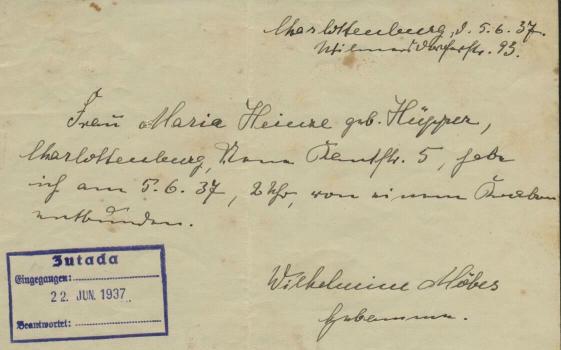 Charlottenburg, d. 5.6.37.
Wilmersdorferstr. 93.
Frau Maria Heinze geb. Hüpper,
Charlottenburg, Neue Kantstr. 5, habe
ich am 5.6.37, 2 Uhr, von einem Knaben
entbunden.
Wilhelmine Möbes
Hebamme.
Zutada
Eingegangen:
22. JUN. 1937
Beantwortet: